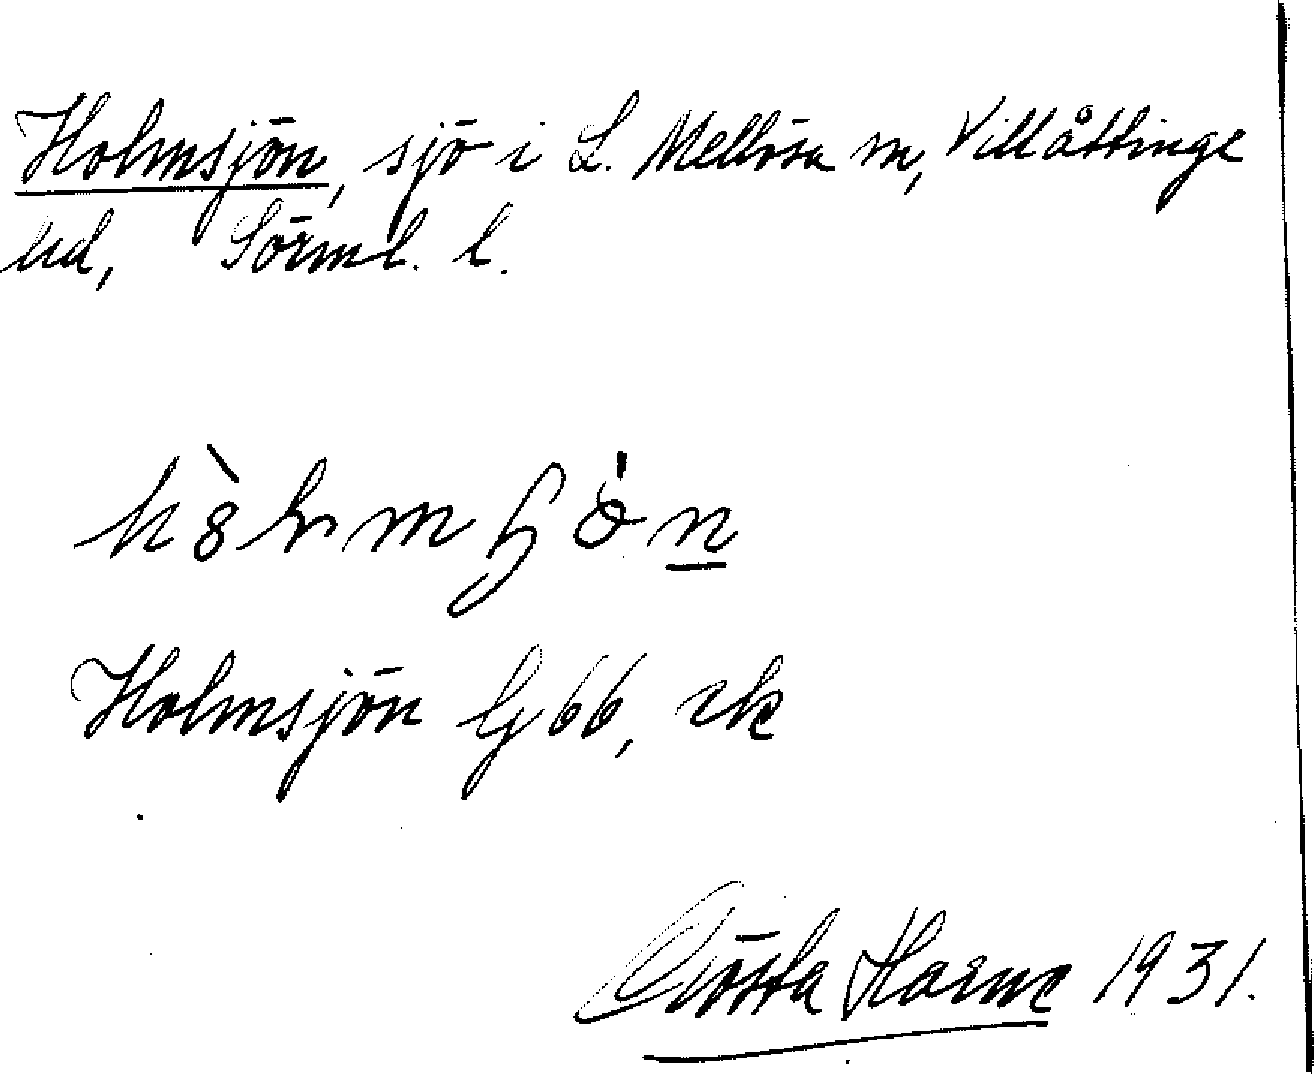 Holmsjön, sjö i L. Mellösa sn, Villåttinge
hd, Sörml. l.
Holmsjön Gj 66, rk
Gösta Harne 1931.